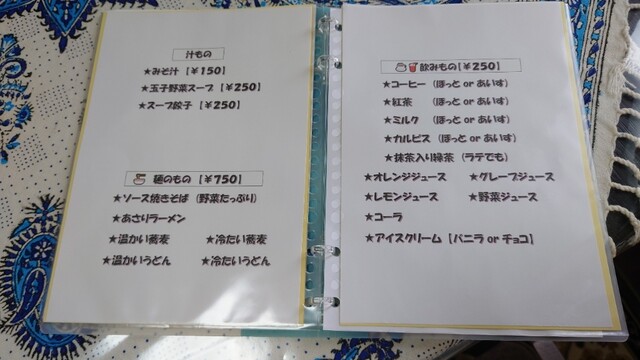 汁もの
★みそ汁【￥150】
★玉子野菜スープ【￥250】
★スープ餃子【￥250】
麺のもの【￥750】
★ソース焼きそば（野菜たっぷり）
★あさりラーメン
★温かい蕎麦 ★冷たい蕎麦
★温かいうどん ★冷たいうどん
飲みもの【￥250】
★コーヒー （ほっと or あいす）
★紅茶 （ほっと or あいす）
★ミルク （ほっと or あいす）
★カルピス（ほっと or あいす）
★抹茶入り緑茶（ラテでも）
★オレンジジュース ★グレープジュース
★レモンジュース ★野菜ジュース
★コーラ
★アイスクリーム【バニラ or チョコ】